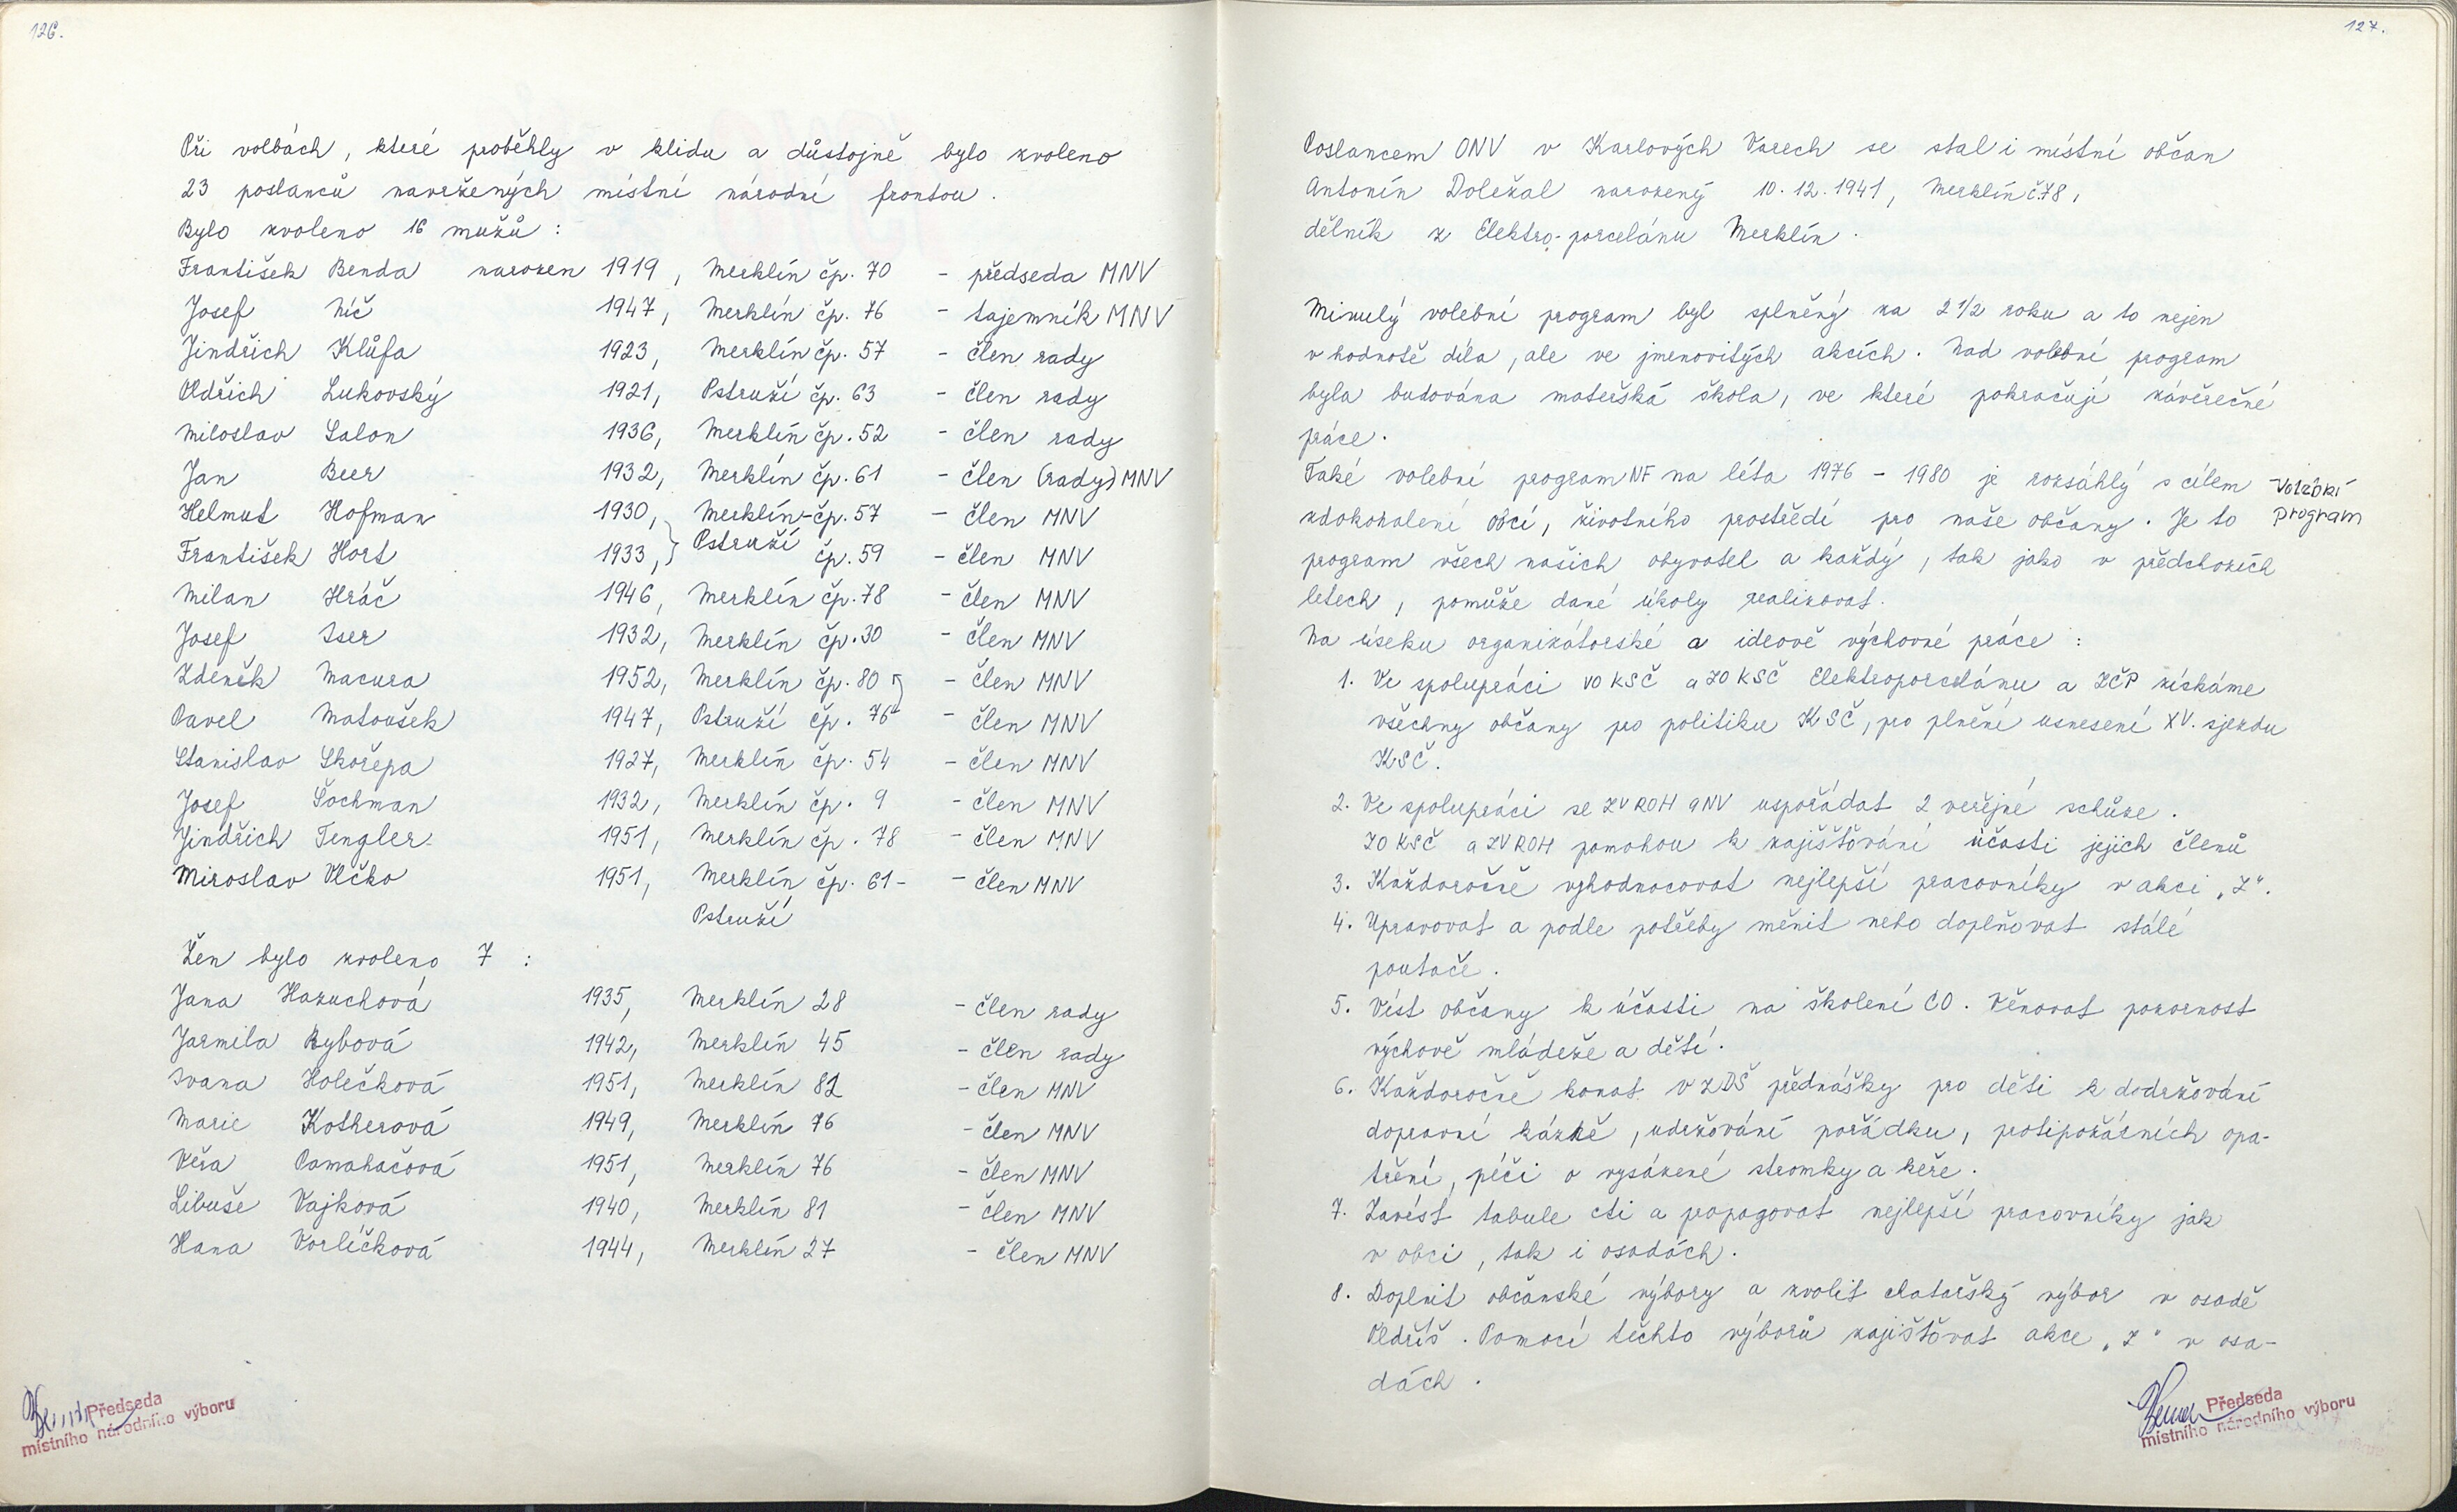 126.
Při volbách, které proběhly v klidu a důstojně bylo zvoleno
23 poslanců navržených místní národní frontou.
Bylo zvoleno 16 mužů :
František Benda narozen 1919, Merklín čp. 70 - předseda MNV
Josef Nič 1947, Merklín čp. 76 - tajemník MNV
Jindřich Klůfa 1923, Merklín čp. 57 - člen rady
Oldřich Lukovský 1921, Pstruží čp. 63 - člen rady
Miloslav Salon 1936, Merklín čp. 52 - člen rady
Jan Beer 1932, Merklín čp. 61 - člen (rady) MNV
Helmut Hofman 1930, Merklín-čp. 57 - člen MNV
František Hort 1933, } Pstruží čp. 59 - člen MNV
Milan Hráč 1946, Merklín čp. 78 - člen MNV
Josef Iser 1932, Merklín čp. 30 - člen MNV
Zdeněk Macura 1952, Merklín čp. 80 - člen MNV
Pavel Matoušek 1947, Pstruží čp. 76 - člen MNV
Stanislav Skořepa 1927, Merklín čp. 54 - člen MNV
Josef Šochman 1932, Merklín čp. 9 - člen MNV
Jindřich Tengler 1951, Merklín čp. 78 - člen MNV
Miroslav Vlčko 1951, Merklín čp. 61- - člen MNV
Pstruží
Žen bylo zvoleno 7 :
Jana Hazuchová 1935, Merklín 28 - člen rady
Jarmila Rybová 1942, Merklín 45 - člen rady
Ivana Holečková 1951, Merklín 82 - člen MNV
Marie Kotherová 1949, Merklín 76 - člen MNV
Věra Pomahačová 1951, Merklín 76 - člen MNV
Libuše Vajková 1940, Merklín 81 - člen MNV
Hana Vorlíčková 1944, Merklín 27 - člen MNV
Předseda
místního národního výboru
127.
Poslancem ONV v Karlových Varech se stal i místní občan
Antonín Doležal narozený 10.12.1941, Merklín č.78,
dělník z Elektro-porcelánu Merklín.
Minulý volební program byl splněný za 2 1/2 roku a to nejen
v hodnotě díla, ale ve jmenovitých akcích. Nad volební program
byla budována mateřská škola, ve které pokračují závěrečné
práce.
Také volební program NF na léta 1976 - 1980 je rozsáhlý s cílem
Volební
zdokonalení obcí, životního prostředí pro naše občany. Je to
program
program všech našich obyvatel a každý, tak jako v předchozích
letech, pomůže dané úkoly realizovat.
Na úseku organizátorské a ideově výchovné práce :
1. Ve spolupráci VO KSČ a ZO KSČ Elektroporcelánu a ZČP získáme
všechny občany pro politiku KSČ, pro plnění usnesení XV. sjezdu
KSČ.
2. Ve spolupráci se ZV ROH a NV uspořádat 2 veřejné schůze.
ZO KSČ a ZV ROH pomohou k zajišťování účasti jejich členů
3. Každoročně vyhodnocovat nejlepší pracovníky v akci „Z".
4. Upravovat a podle potřeby měnit nebo doplňovat stálé
poutače.
5. Vést občany k účasti na školení CO. Věnovat pozornost
výchově mládeže a dětí.
6. Každoročně konat v ZDŠ přednášky pro děti k dodržování
dopravní kázně, udržování pořádku, protipožárních opa-
tření, péči o vysázené stromky a keře.
7. Zavést tabule cti a propagovat nejlepší pracovníky jak
v obci, tak i osadách.
8. Doplnit občanské výbory a zvolit chatařský výbor v osadě
Oldříš. Pomocí těchto výborů zajišťovat akce „Z" v osa-
dách.
Předseda
místního národního výboru